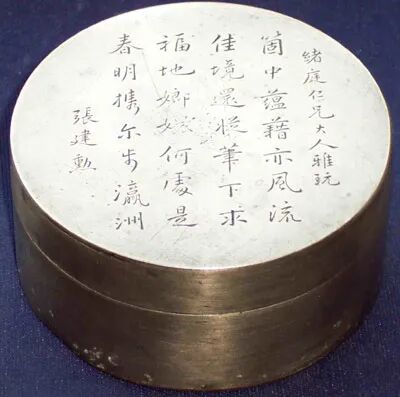 緒庭仁兄大人雅玩
箇中蕴藉亦風流
佳境還從筆下求
福地嫏嬛何處是
春明携尓步瀛洲
張建勲